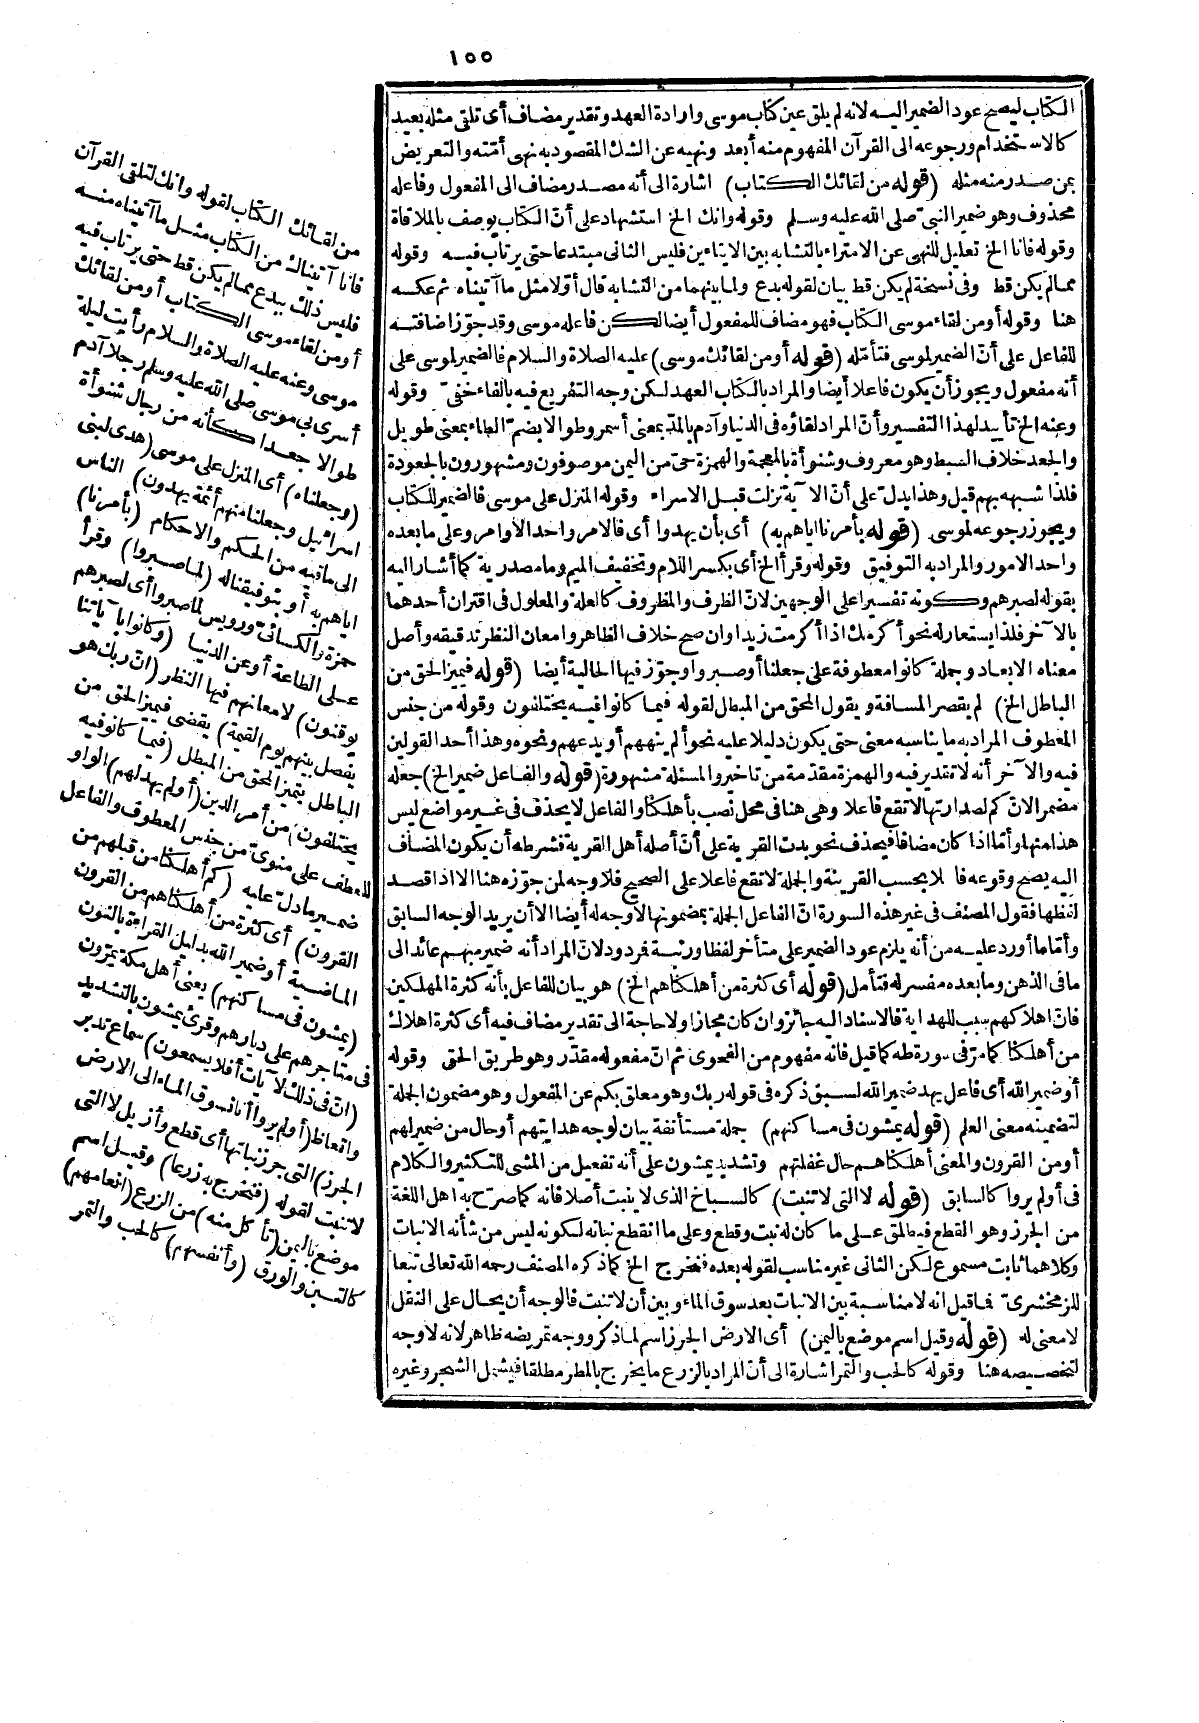 ١٥٥
الكتاب ليصح عود الضمير اليه لانه لم يلق عين كتاب موسى وارادة العهد وتقدير مضاف أى تلقى مثله بعيد
كالاستخدام ورجوعه الى القرآن المفهوم منه أبعد ونهيه عن الشك المقصود به نهى أمّته والتعريض
بمن صدر منه مثله (قوله من لقائك الكتاب) اشارة الى أنه مصدر مضاف الى المفعول وفاعله
محذوف وهو ضمير النبىّ صلى الله عليه وسلم وقوله وانك الخ استشهاد على أنّ الكتاب يوصف بالملاقاة
وقوله فانا الخ تعليل للنهى عن الامتراء بالتشابه بين الايتاءين فليس الثانى مبتدعا حتى يرتاب فيه وقوله
ممالم يكن قط وفى نسخة لم يكن قط بيان لقوله بدع ولما بينهما من التشابه قال أوّلا مثل ما آتيناه ثم عكسه
هنا وقوله أو من لقاء موسى الكتاب فهو مضاف للمفعول أيضا لكن فاعله موسى وقد جوّز اضافته
للفاعل على أنّ الضمير لموسى فتأمّله (قوله أو من لقائك موسى) عليه الصلاة والسلام فالضمير لموسى على
أنه مفعول ويجوز أن يكون فاعلا أيضا والمراد بالكتاب العهد لكن وجه التفريع فيه بالفاء خفىّ وقوله
وعنه الخ تأييد لهذا التفسير وأنّ المراد لقاؤه فى الدنيا وآدم بالمدّ بمعنى أسمر وطوالا بضمّ الطاء بمعنى طويل
والجعد خلاف السبط وهو معروف وشنوأة بالمعجمة والهمزة حىّ من اليمن موصوفون ومشهورون بالجعودة
فلذا شبهه بهم قيل وهذا يدلّ على أنّ الآية نزلت قبل الاسراء وقوله المنزل على موسى فالضمير للكتاب
ويجوز رجوعه لموسى (قوله بأمرنا اياهم به) أى بأن يهدوا أى فالامر واحد الأوامر وعلى ما بعده
واحد الامور والمراد به التوفيق وقوله وقرأ الخ أى بكسر اللام وتخفيف الميم وما مصدرية كما أشار اليه
بقوله لصبرهم وكونه تفسيرا على الوجهين لانّ الظرف والمظروف كالعلة والمعلول فى اقتران أحدهما
بالآخر فلذا يستعار له نحو أكرمك اذا أكرمت زيدا وان صح خلاف الظاهر وامعان النظر تدقيقه وأصل
معناه الابعاد وجملة كانوا معطوفة على جعلنا أو صبروا وجوّز فيها الحالية أيضا (قوله فيميز الحق من
الباطل الخ) لم يقصر المسافة ويقول المحق من المبطل لقوله فيما كانوا فيه يختلفون وقوله من جنس
المعطوف المراد به ما يناسبه معنى حتى يكون دليلا عليه نحو ألم ينههم أو يدعهم ونحوه وهذا أحد القولين
فيه والآخر أنه لا تقدير فيه والهمزة مقدمة من تأخير والمسئلة مشهورة (قوله والفاعل ضمير الخ) جعله
مضمرا لانّ كم لصدارتها لا تقع فاعلا وهى هنا فى محل نصب بأهلكنا والفاعل لا يحذف فى غير مواضع ليس
هذا منها وأمّا اذا كان مضافا فيحذف نحو بدت القرية على أنّ أصله أهل القرية فشرطه أن يكون المضاف
اليه يصح وقوعه فاعلا بحسب القرينة والجملة لا تقع فاعلا على الصحيح فلا وجه لمن جوّزه هنا الا اذا قصد
لفظها فقول المصنف فى غير هذه السورة انّ الفاعل الجملة بمضمونها لا وجه له أيضا الا أن يريد الوجه السابق
وأمّا ما أورد عليه من أنه يلزم عود الضمير على متأخر لفظا ورتبة فمردود لانّ المراد أنه ضمير مبهم عائد الى
ما فى الذهن وما بعده مفسر له فتأمل (قوله أى كثرة من أهلكناهم الخ) هو بيان للفاعل بأنه كثرة المهلكين
فانّ اهلاكهم سبب للهداية فالاسناد اليه جائز وان كان مجازا ولا حاجة الى تقدير مضاف فيه أى كثرة اهلاك
من أهلكنا كما مرّ فى سورة طه كما قيل فانه مفهوم من الفحوى ثم انّ مفعوله مقدّر وهو طريق الحق وقوله
أو ضمير الله أى فاعل يهد ضمير الله لسبق ذكره فى قوله ربك وهو معلق بكم عن المفعول وهو مضمون الجملة
لتضمينه معنى العلم (قوله يمشون فى مساكنهم) جملة مستأنفة بيان لوجه هدايتهم أو حال من ضمير لهم
أو من القرون والمعنى أهلكناهم حال غفلتهم وتشديد يمشون على أنه تفعيل من المشى للتكثير والكلام
فى أولم يروا كالسابق (قوله لا التى لا تنبت) كالسباخ الذى لا ينبت أصلا فانه كما صرّح به اهل اللغة
من الجرز وهو القطع فيطلق على ما كان له نبت وقطع وعلى ما انقطع نباته لكونه ليس من شأنه الانبات
وكلاهما ثابت مسموع لكن الثانى غير مناسب لقوله بعده فنخرج الخ كما ذكره المصنف رحمه الله تعالى تبعا
للزمخشرىّ فما قيل انه لا مناسبة بين الانبات بعد سوق الماء وبين أن لا تنبت فالوجه أن يحال على النقل
لا معنى له (قوله وقيل اسم موضع باليمن) أى الارض الجرز اسم لما ذكر ووجه تمريضه ظاهر لانه لا وجه
لتخصيصه هنا وقوله كالحب والتمر اشارة الى أنّ المراد بالزرع ما يخرج بالمطر مطلقا فيشمل الشجر وغيره
من لقائك الكتاب لقوله وانك لتلقى القرآن
فانا آتيناك من الكتاب مثل ما آتيناه منه
فليس ذلك ببدع ممالم يكن قط حتى يرتاب فيه
أو من لقاء موسى الكتاب أو من لقائك
موسى وعنه عليه الصلاة والسلام رأيت ليلة
أسرى بى موسى صلى الله عليه وسلم رجلا آدم
طوالا جعدا كأنه من رجال شنوأة
(وجعلناه) أى المنزل على موسى (هدى لبنى
اسرائيل وجعلنا منهم أئمة يهدون) الناس
الى ما فيه من الحكم والاحكام (بأمرنا)
اياهم به أو بتوفيقنا له (لما صبروا) وقرأ
حمزة والكسائىّ ورويس لما صبروا أى لصبرهم
على الطاعة أو عن الدنيا (وكانوا بآياتنا
يوقنون) لامعانهم فيها النظر (انّ ربك هو
يفصل بينهم يوم القيمة) يقضى فيميز الحق من
الباطل بتميز المحق من المبطل (فيما كانوا فيه
يختلفون) من أمر الدين (أولم يهد لهم) الواو
للعطف على منوىّ من جنس المعطوف والفاعل
ضمير ما دلّ عليه (كم أهلكنا من قبلهم من
القرون) أى كثرة من أهلكناهم من القرون
الماضية أو ضمير الله بدليل القراءة بالنون
(يمشون فى مساكنهم) يعنى أهل مكة يمرّون
فى متاجرهم على ديارهم وقرئ يمشون بالتشديد
(انّ فى ذلك لآيات أفلا يسمعون) سماع تدبر
واتعاظ (أولم يروا أنا نسوق الماء الى الارض
الجرز) التى جرز نباتها أى قطع وأزيل لا التى
لا تنبت لقوله (فنخرج به زرعا) وقيل اسم
موضع باليمن (تأكل منه) من الزرع (أنعامهم)
كالتبن والورق (وأنفسهم) كالحب والتمر